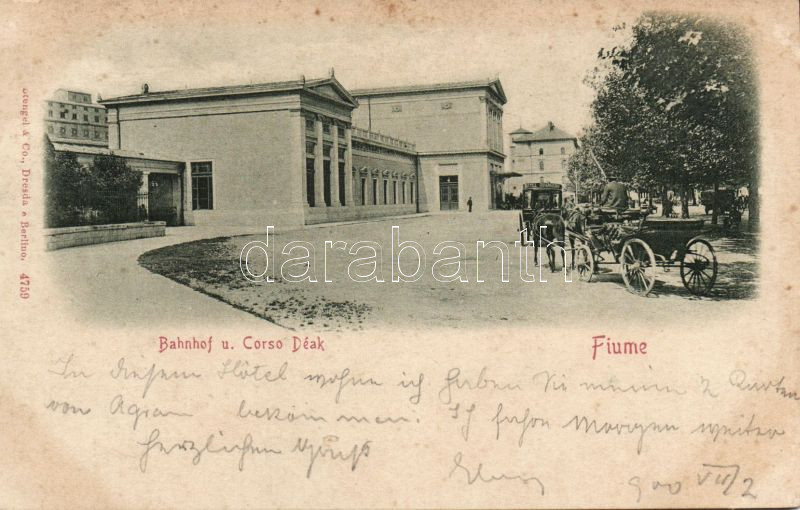 Stengel & Co., Dresda e Berlino. 4759
darabanth
Bahnhof u. Corso Déak
Fiume
In diesem Hôtel wohne ich haben Sie meine 2 Karten
von Agram bekommen. Ich fahre Morgen weiter
herzlichen Gruß
900 VII/2